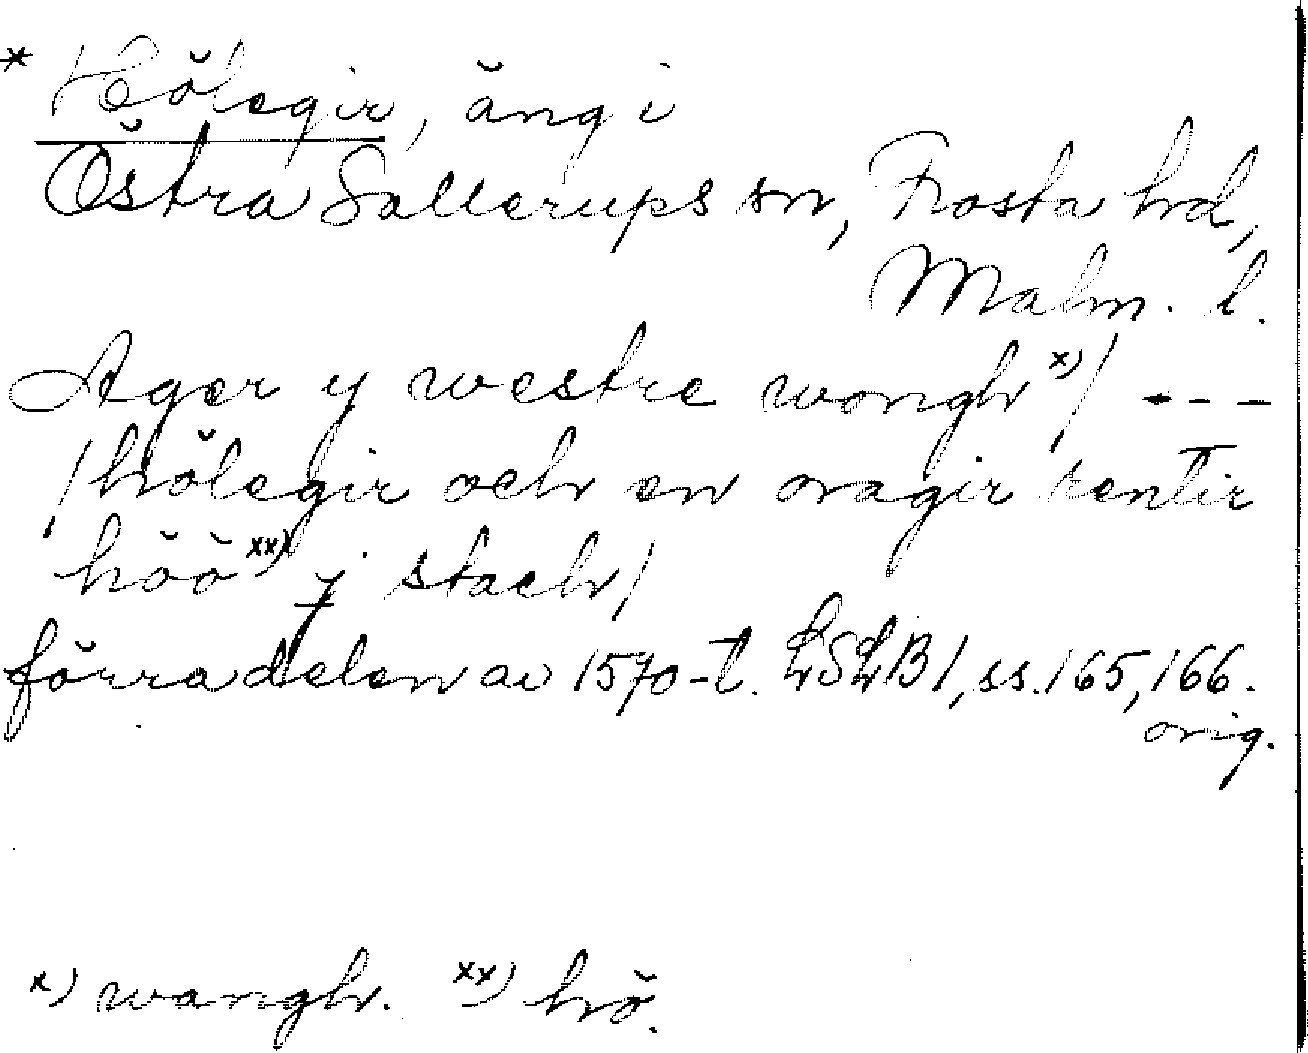 * Hölegir, äng i
Östra Sallerups sn, Frosta hd,
Malm. l.
Ager y westre wongh x) / ---
/ hölegir och en oragir rentir
höö xx) j stach /
förra delen av 1570-t. LSLB 1, ss. 165, 166.
orig.
x) wangh. xx) hö.